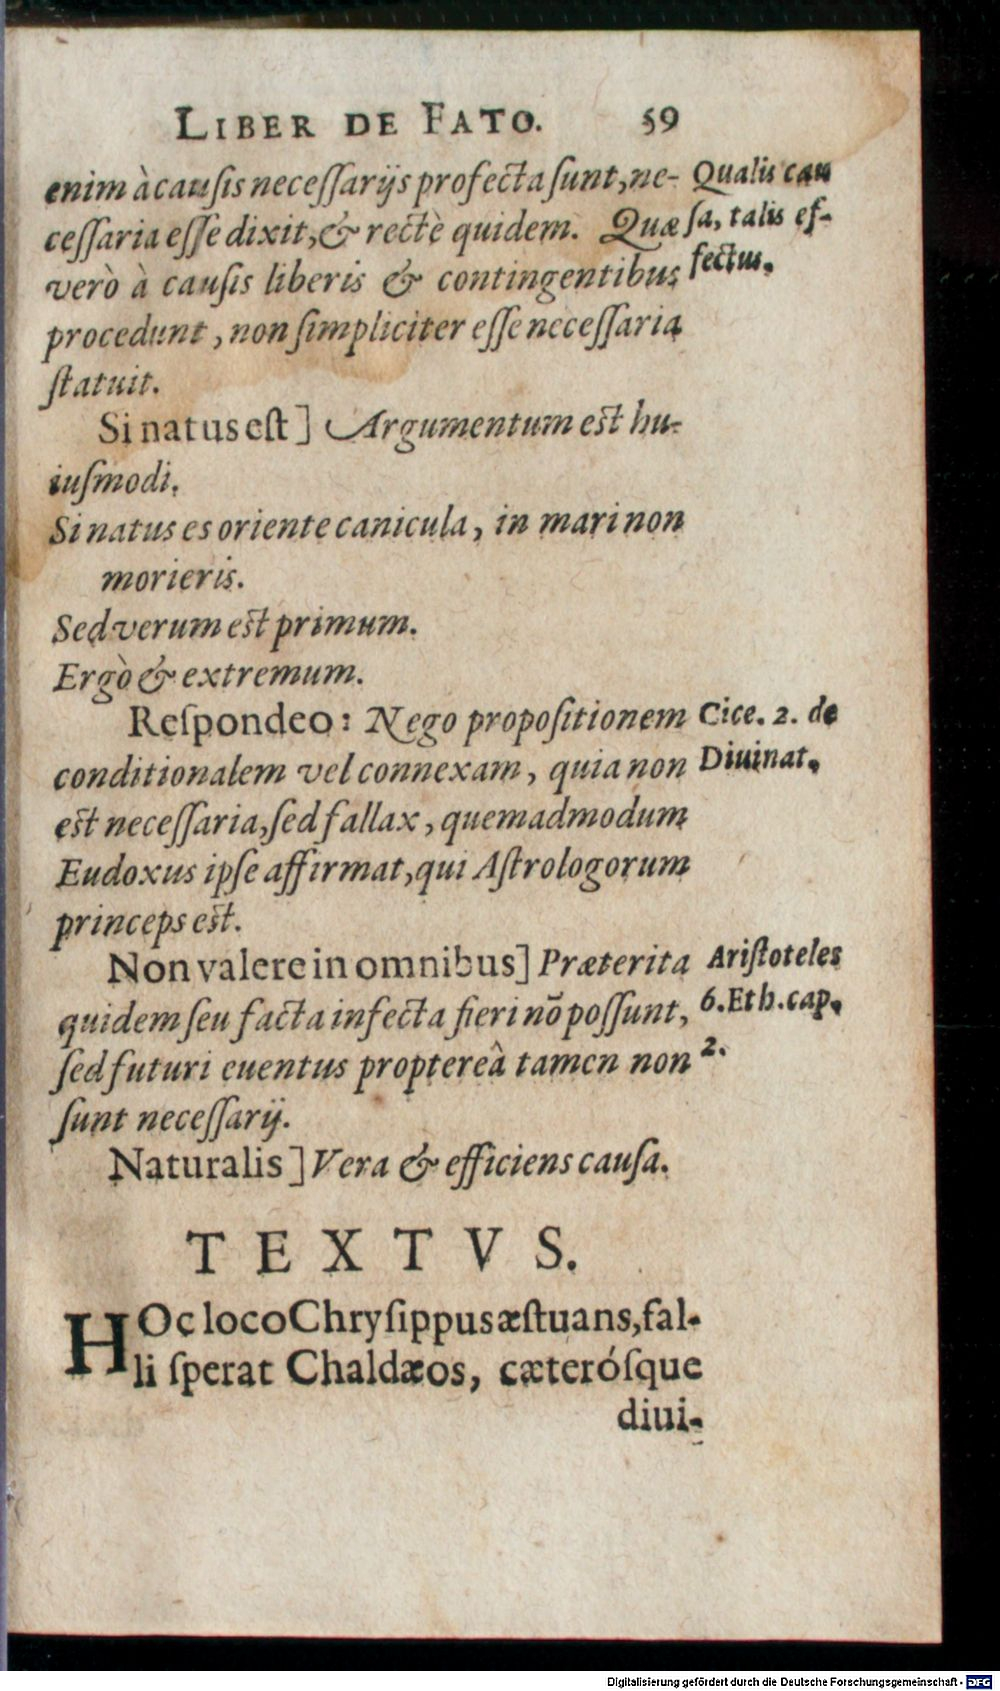 LIBER DE FATO. 59
enim à causis necessarijs profecta sunt, ne-
cessaria esse dixit, & rectè quidem. Quæ
verò à causis liberis & contingentibus
procedunt, non simpliciter esse necessaria
statuit.
Qualis cau
sa, talis ef-
fectus.
Si natus est] Argumentum est hu-
iusmodi.
Si natus es oriente canicula, in mari non
morieris.
Sed verum est primum.
Ergò & extremum.
Respondeo: Nego propositionem
conditionalem vel connexam, quia non
est necessaria, sed fallax, quemadmodum
Eudoxus ipse affirmat, qui Astrologorum
princeps est.
Cice. 2. de
Diuinat.
Non valere in omnibus] Præterita
quidem seu facta infecta fieri nõ possunt,
sed futuri euentus proptereâ tamen non
sunt necessarij.
Aristoteles
6. Eth. cap.
2.
Naturalis] Vera & efficiens causa.
TEXTVS.
HOc loco Chrysippus æstuans, fal-
li sperat Chaldæos, cæterósque
diui-
Digitalisierung gefördert durch die Deutsche Forschungsgemeinschaft - DFG